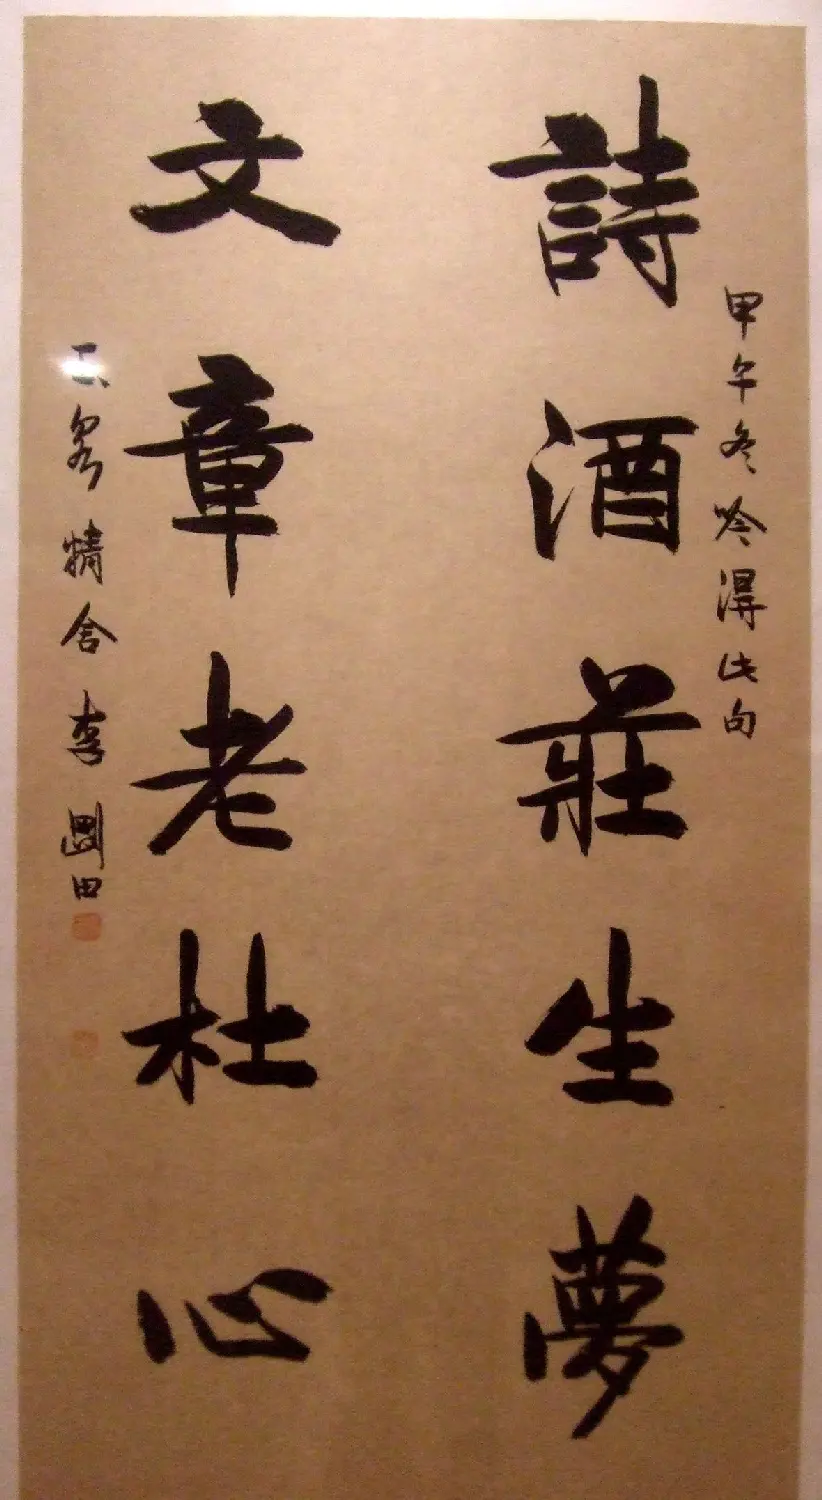 甲午冬吟得此句
詩酒莊生夢
文章老杜心
精舍李圖田